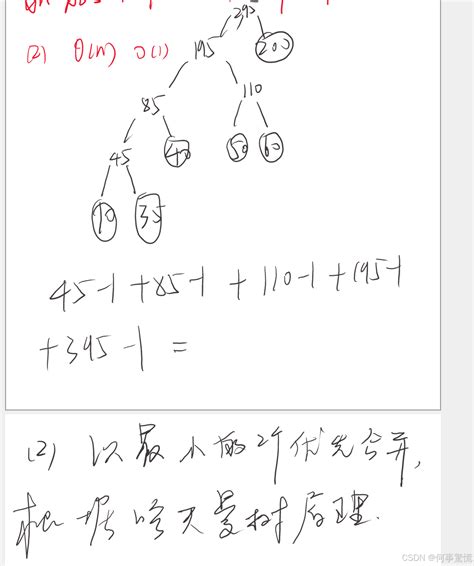 (2) O(n) O(1)
395
195 200
85 110
45 40 50 60
10 35
45-1+85-1+110-1+195-1
+395-1=
(2) 以最小的2个优先合并,
根据哈夫曼树原理.
CSDN @何事驚慌